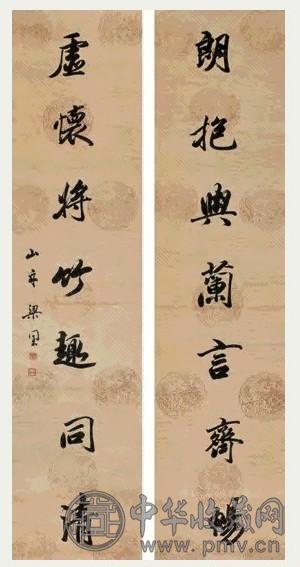 朗抱與蘭言齊暢
虛懷將竹趣同清
山舟梁
中华收藏网
www.pmv.cn